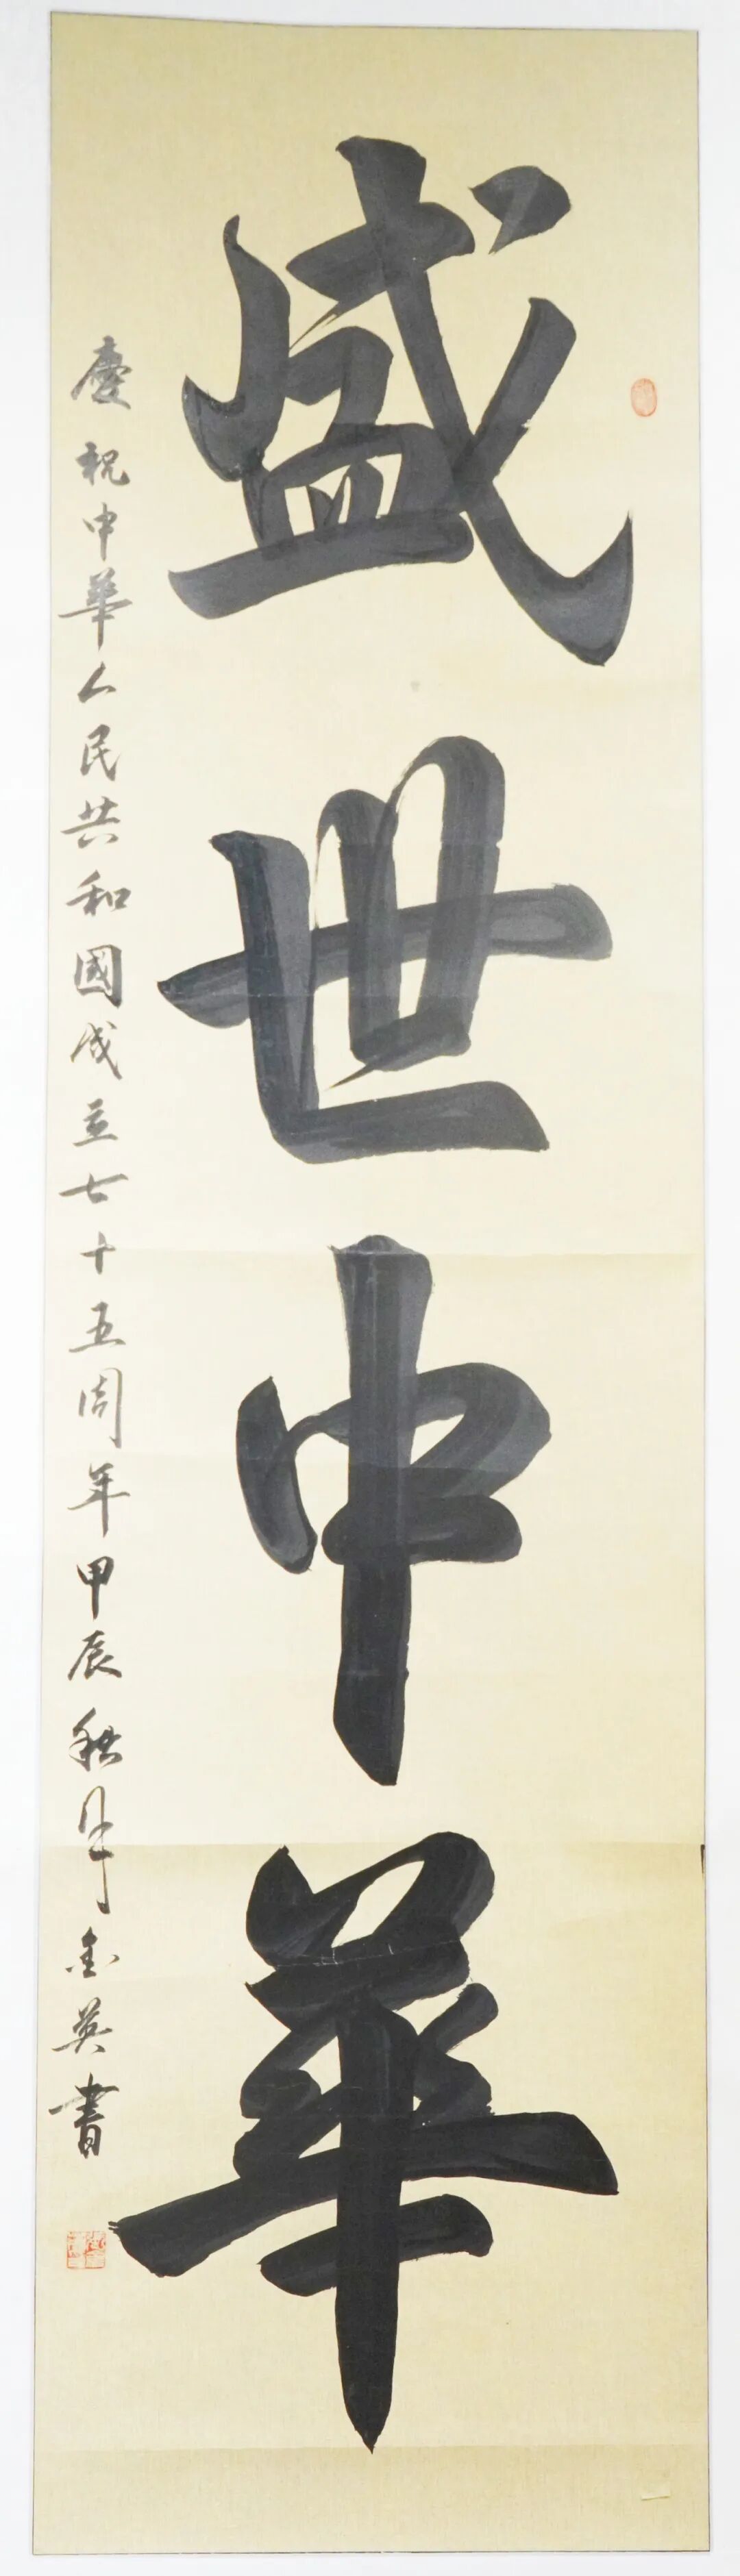 盛世中華
慶祝中華人民共和國成立七十五周年甲辰秋月英書